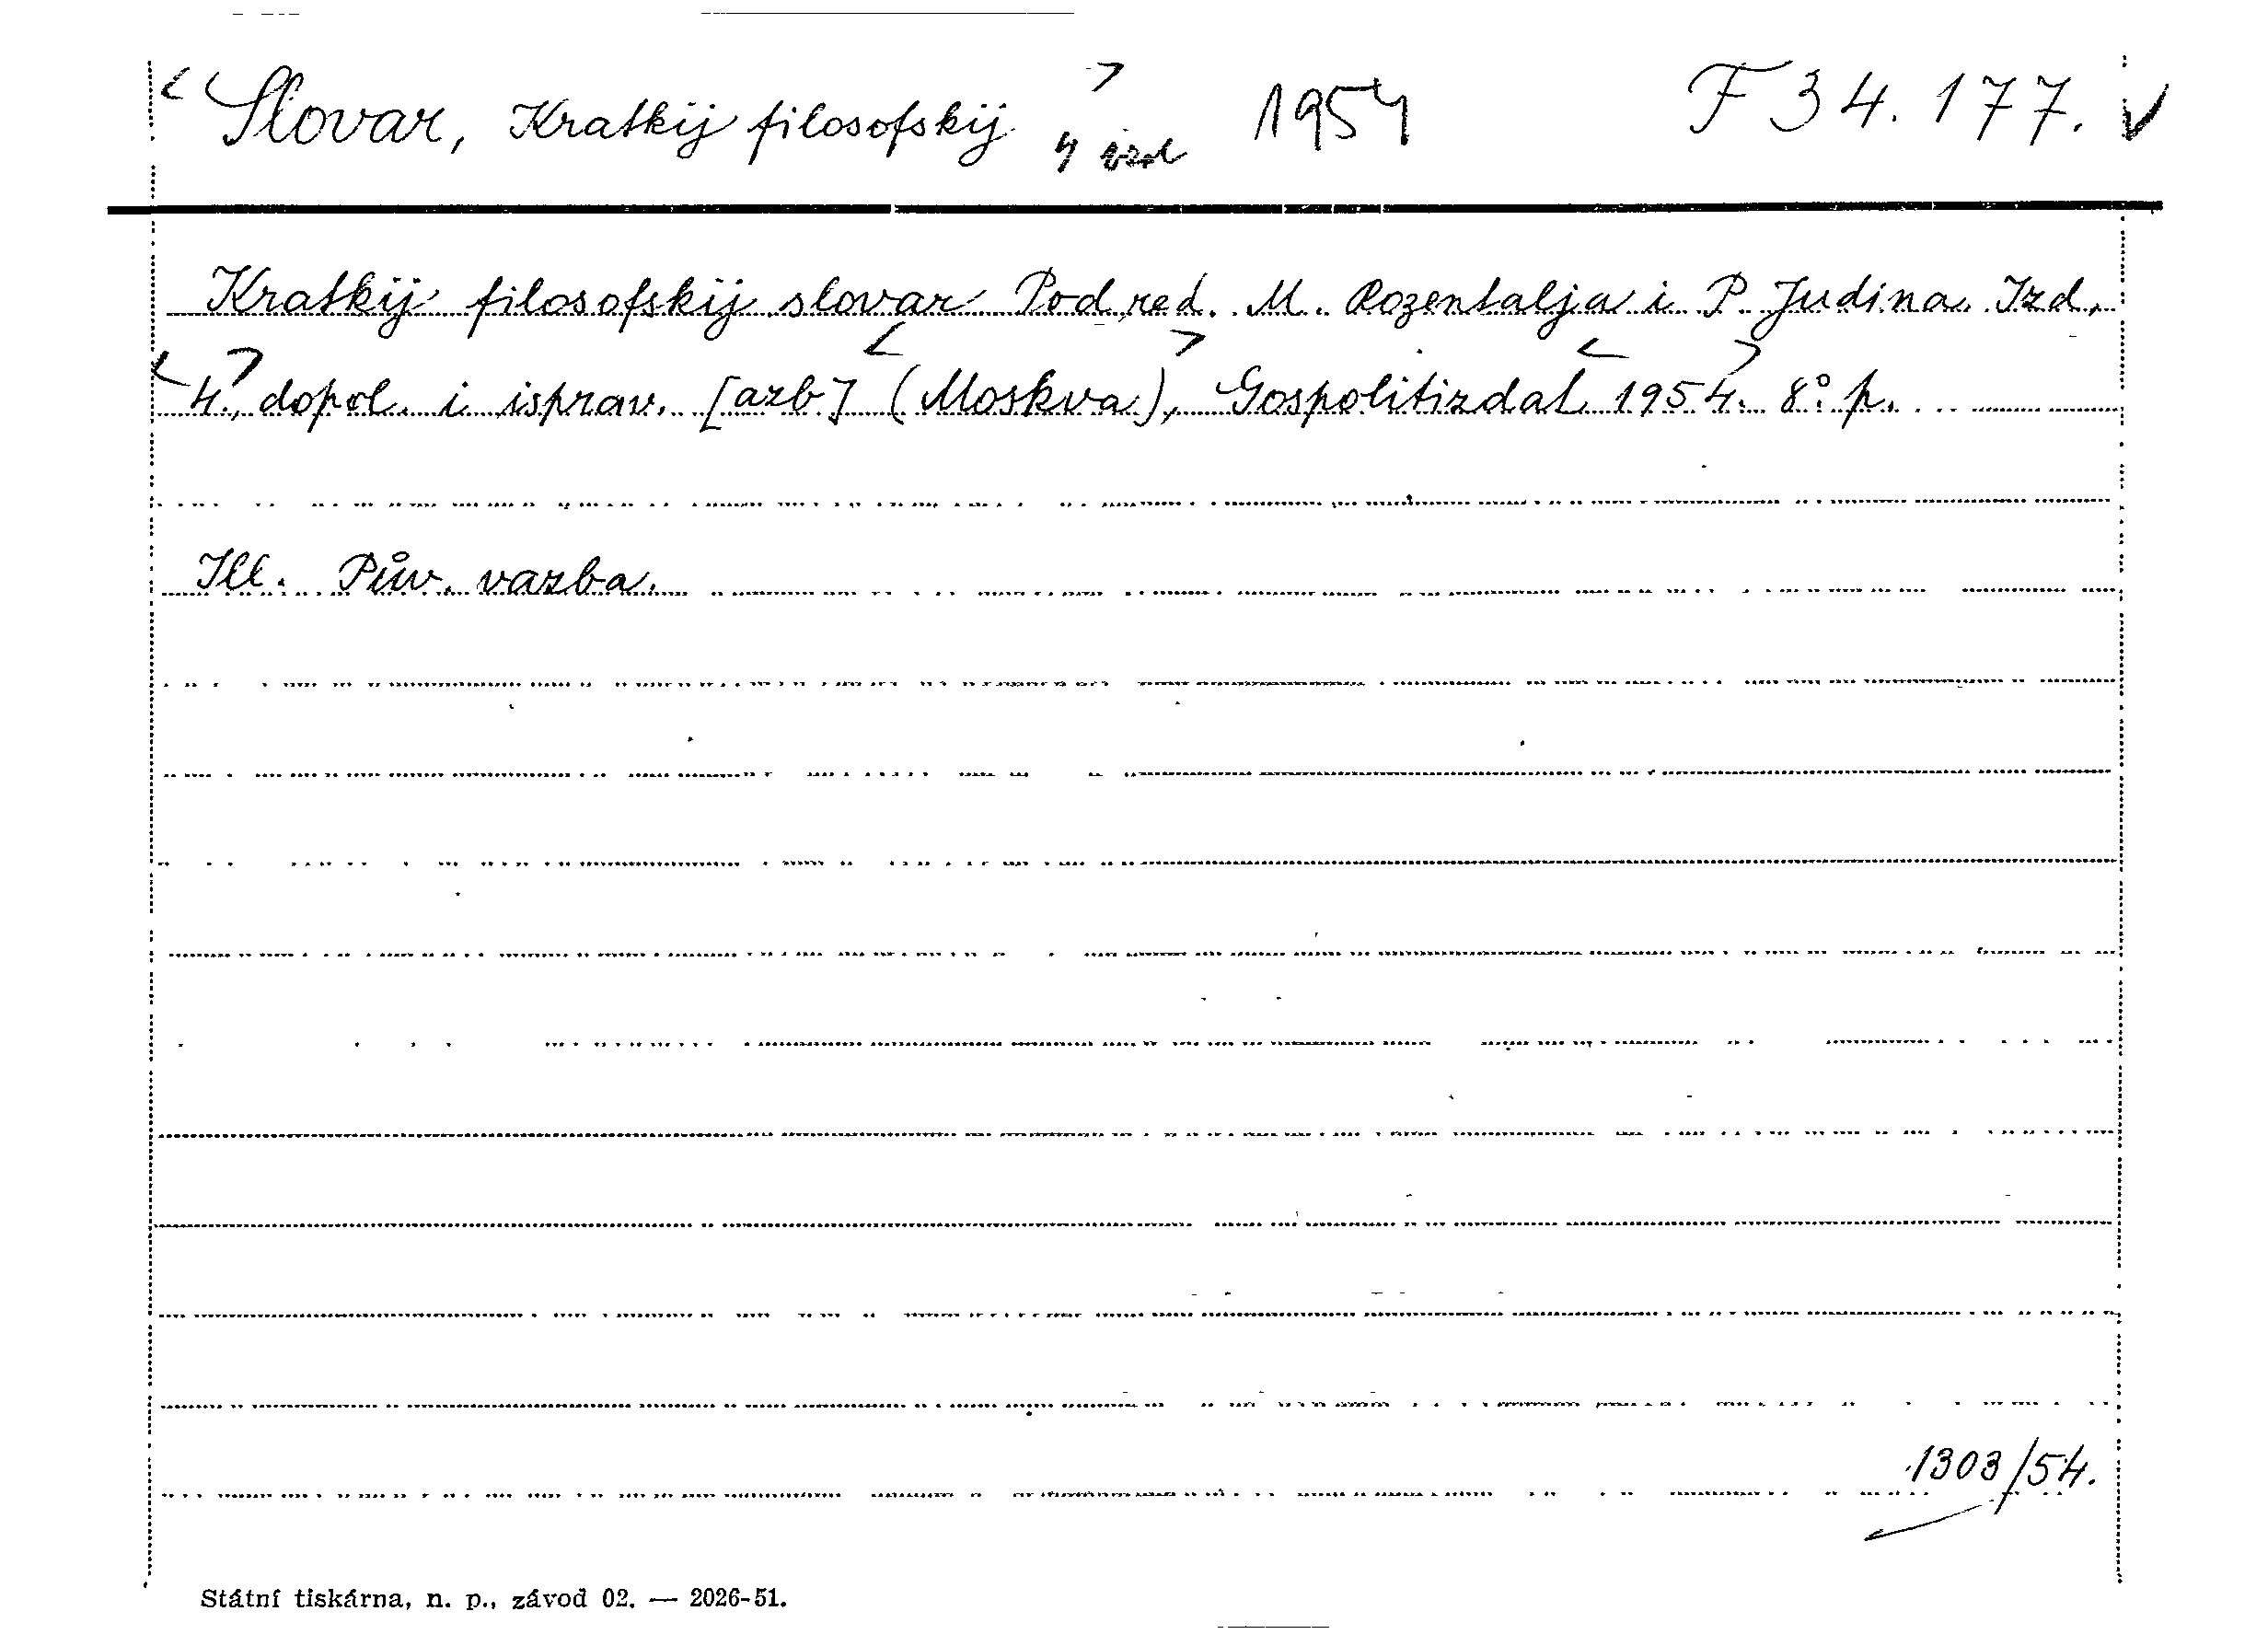 < Slovar, Kratkij filosofskij > 4 izd 1954 F 34.177. v
Kratkij filosofskij slovar Pod red. M. Rozentalja i P. Judina. Izd.
<4.>, dopol. i isprav. [azb] <(Moskva)>, Gospolitizdat <1954>. 8° p.
Ill. Pův. vazba.
1303/54.
Státní tiskárna, n. p., závod 02. — 2026-51.